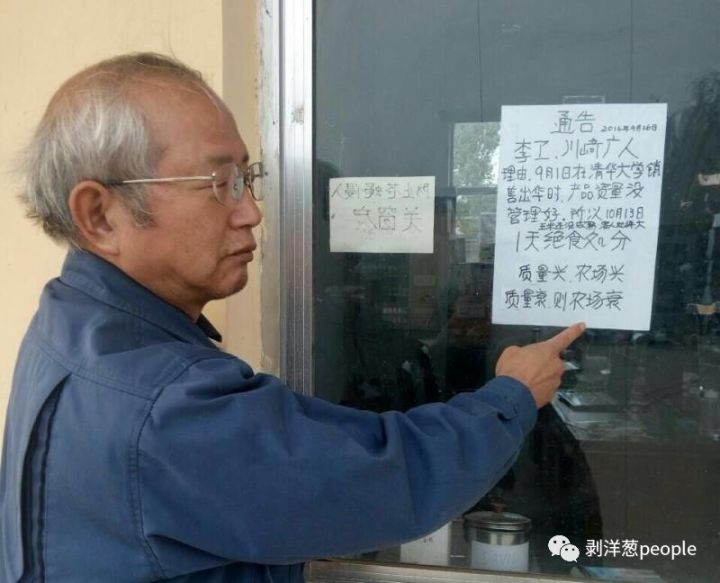 通告 2016年9月16日
李卫、川崎广人
理由，9月1日在清华大学销
售出华时，产品质量没
管理好，所以10月13日
1天绝食处分
质量兴、农场兴
质量衰，则农场衰
剥洋葱people